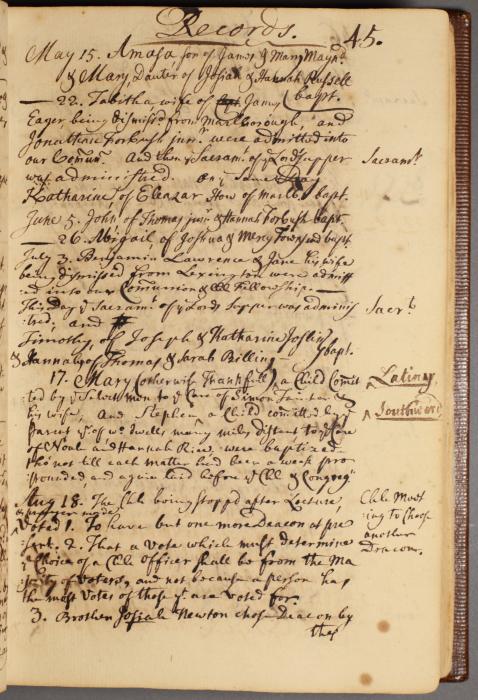 Records. 45.
May 15. Amasa son of James & Mary Mayn.d
& Mary, Dauter of Josiah & Hannah Russell
bapt.
— 22. Tabitha wife of James
Eager being dismiss'd from Marlborough, and
Jonathan Forbush junr. were admitted into
our Comun. And then ye Sacram. of ye Lords supper
was administred. On ye same Day
Sacramt.
Katharine of Eleazar How of Marlb. bapt.
June 5. John of Thomas junr. & Hannah Forbush bapt.
— 26. Abigail of Joshua & Mercy Townsend bapt
July 3. Benjamin Lawrence & Jane his wife
being dismissed from Lexington were admitt
ed into our Communion & Chh Fellowship. —
This Day ye Sacramt of ye Lords Supper was adminis
tred, and
Sacrt.
Timothy, of Joseph & Katharine Joslin
& Hannah of Thomas & Sarah Billing
bapt.
17. Mary (otherwise Thankfull) a Child Comit
ted by ye Select men to ye Care of Simon Tainter &
his wife, And Stephen a Child comitted by
Latiny
Southworth
Parent yt of wc. dwells many miles distant to ye Care
of Noah and Hannah Rice were baptized
tho not till each matter had been a week pro
pounded and again laid before ye Chh & Congregn
Aug 18. The Chh being stopp'd after Lecture,
Voted 1. To have but one more Deacon at pre
sent. 2. That a vote which must determine
ye Choice of a Chh Officer shall be from the Ma
jority of voters, and not because a person has
the most Votes of those yt are Voted for.
Chh Meet
ing to Choose
another
Deacon.
3. Brother Josiah Newton chose Deacon by
the